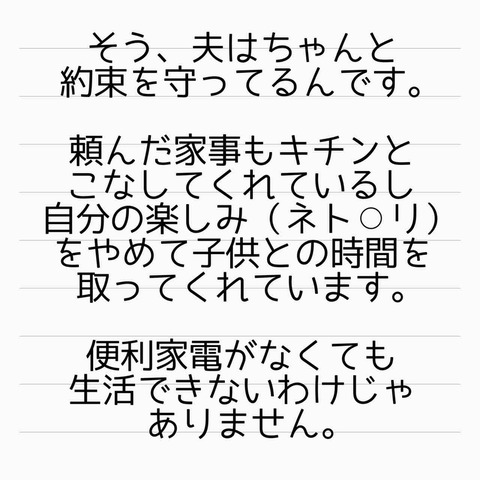 そう、夫はちゃんと
約束を守ってるんです。
頼んだ家事もキチンと
こなしてくれているし
自分の楽しみ（ネト○リ）
をやめて子供との時間を
取ってくれています。
便利家電がなくても
生活できないわけじゃ
ありません。